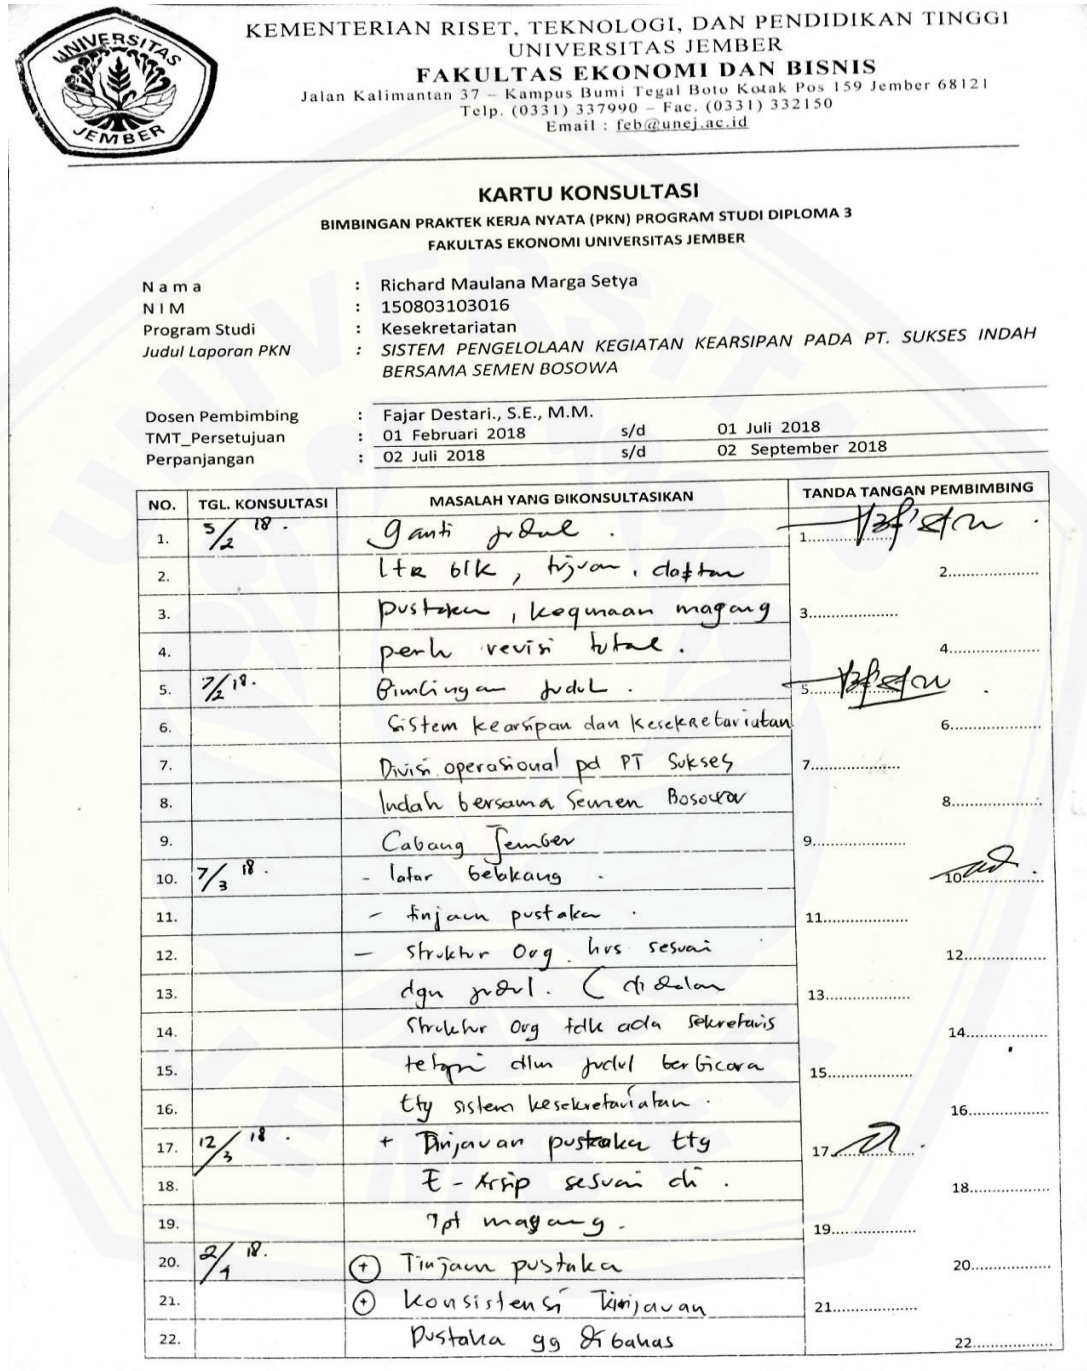 UNIVERSITAS
JEMBER
KEMENTERIAN RISET, TEKNOLOGI, DAN PENDIDIKAN TINGGI
UNIVERSITAS JEMBER
FAKULTAS EKONOMI DAN BISNIS
Jalan Kalimantan 37 – Kampus Bumi Tegal Boto Kotak Pos 159 Jember 68121
Telp. (0331) 337990 – Fac. (0331) 332150
Email : feb@unej.ac.id
KARTU KONSULTASI
BIMBINGAN PRAKTEK KERJA NYATA (PKN) PROGRAM STUDI DIPLOMA 3
FAKULTAS EKONOMI UNIVERSITAS JEMBER
N a m a : Richard Maulana Marga Setya
N I M : 150803103016
Program Studi : Kesekretariatan
Judul Laporan PKN : SISTEM PENGELOLAAN KEGIATAN KEARSIPAN PADA PT. SUKSES INDAH
BERSAMA SEMEN BOSOWA
Dosen Pembimbing : Fajar Destari., S.E., M.M.
TMT_Persetujuan : 01 Februari 2018 s/d 01 Juli 2018
Perpanjangan : 02 Juli 2018 s/d 02 September 2018
NO. TGL. KONSULTASI MASALAH YANG DIKONSULTASIKAN TANDA TANGAN PEMBIMBING
1. 5/2 18. Ganti judul . 1....................
2. ltr blk, tujuan, daftar 2....................
3. pustaka, kegunaan magang 3...................
4. perlu revisi total. 4....................
5. 7/2 18. Bimbingan judul . 5....................
6. Sistem kearsipan dan Kesekretariatan 6....................
7. Divisi operasional pd PT Sukses 7....................
8. Indah bersama Semen Bosowa 8....................
9. Cabang Jember 9....................
10. 7/3 18 . - latar belakang . 10..................
11. - tinjaun pustaka . 11..................
12. - Struktur Org. hrs sesuai 12..................
13. dgn judul. ( di dalam 13..................
14. Struktur Org tdk ada sekretaris 14..................
15. tetapi dlm judul berbicara 15..................
16. ttg sistem kesekretariatan . 16..................
17. 12/3 18 . + Tinjauan pustaka ttg 17..................
18. E - Arsip sesuai di . 18..................
19. Tpt magang . 19..................
20. 2/4 18. + Tinjaun pustaka 20..................
21. + Konsistensi Tinjauan 21..................
22. Pustaka yg dibahas 22..................